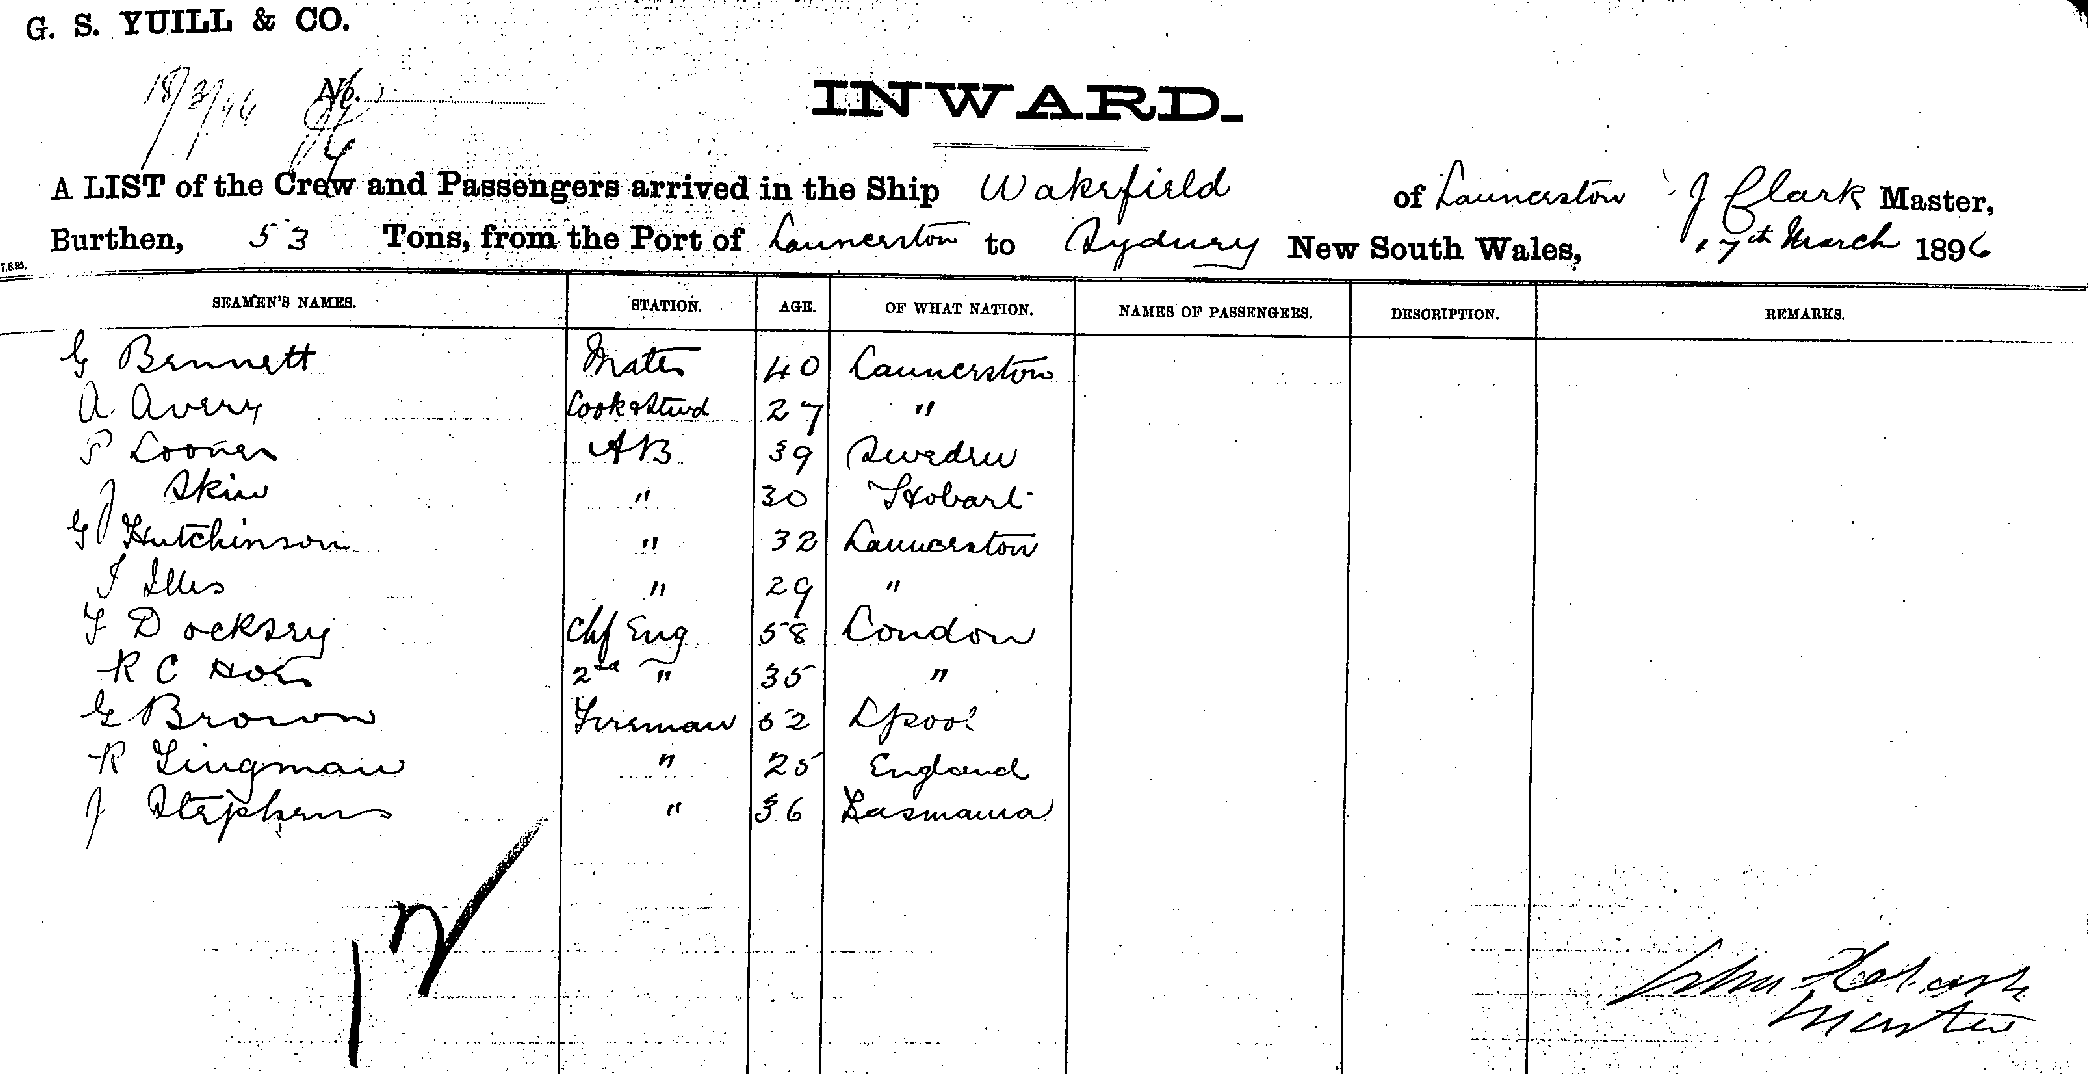 G. S. YUILL & CO.
18/3/96 No.
INWARD.
A LIST of the Crew and Passengers arrived in the Ship Wakefield of Launceston J Clark Master,
Burthen, 53 Tons, from the Port of Launceston to Sydney New South Wales, 17th March 1896
SEAMEN'S NAMES. STATION. AGE. OF WHAT NATION. NAMES OF PASSENGERS. DESCRIPTION. REMARKS.
G Bennett Mate 40 Launceston
A Avery Cook & Stwd 27 "
P AB 39 Sweden
J Skin " 30 Hobart
G Hutchinson " 32 Launceston
" 29 "
F Docksey Chf Eng 58 London
R C 2nd " 35 "
G Brown Fireman 52 Lpool
R Lingman " 25 England
J Stephens " 36 Tasmania
12
John Clark
Master